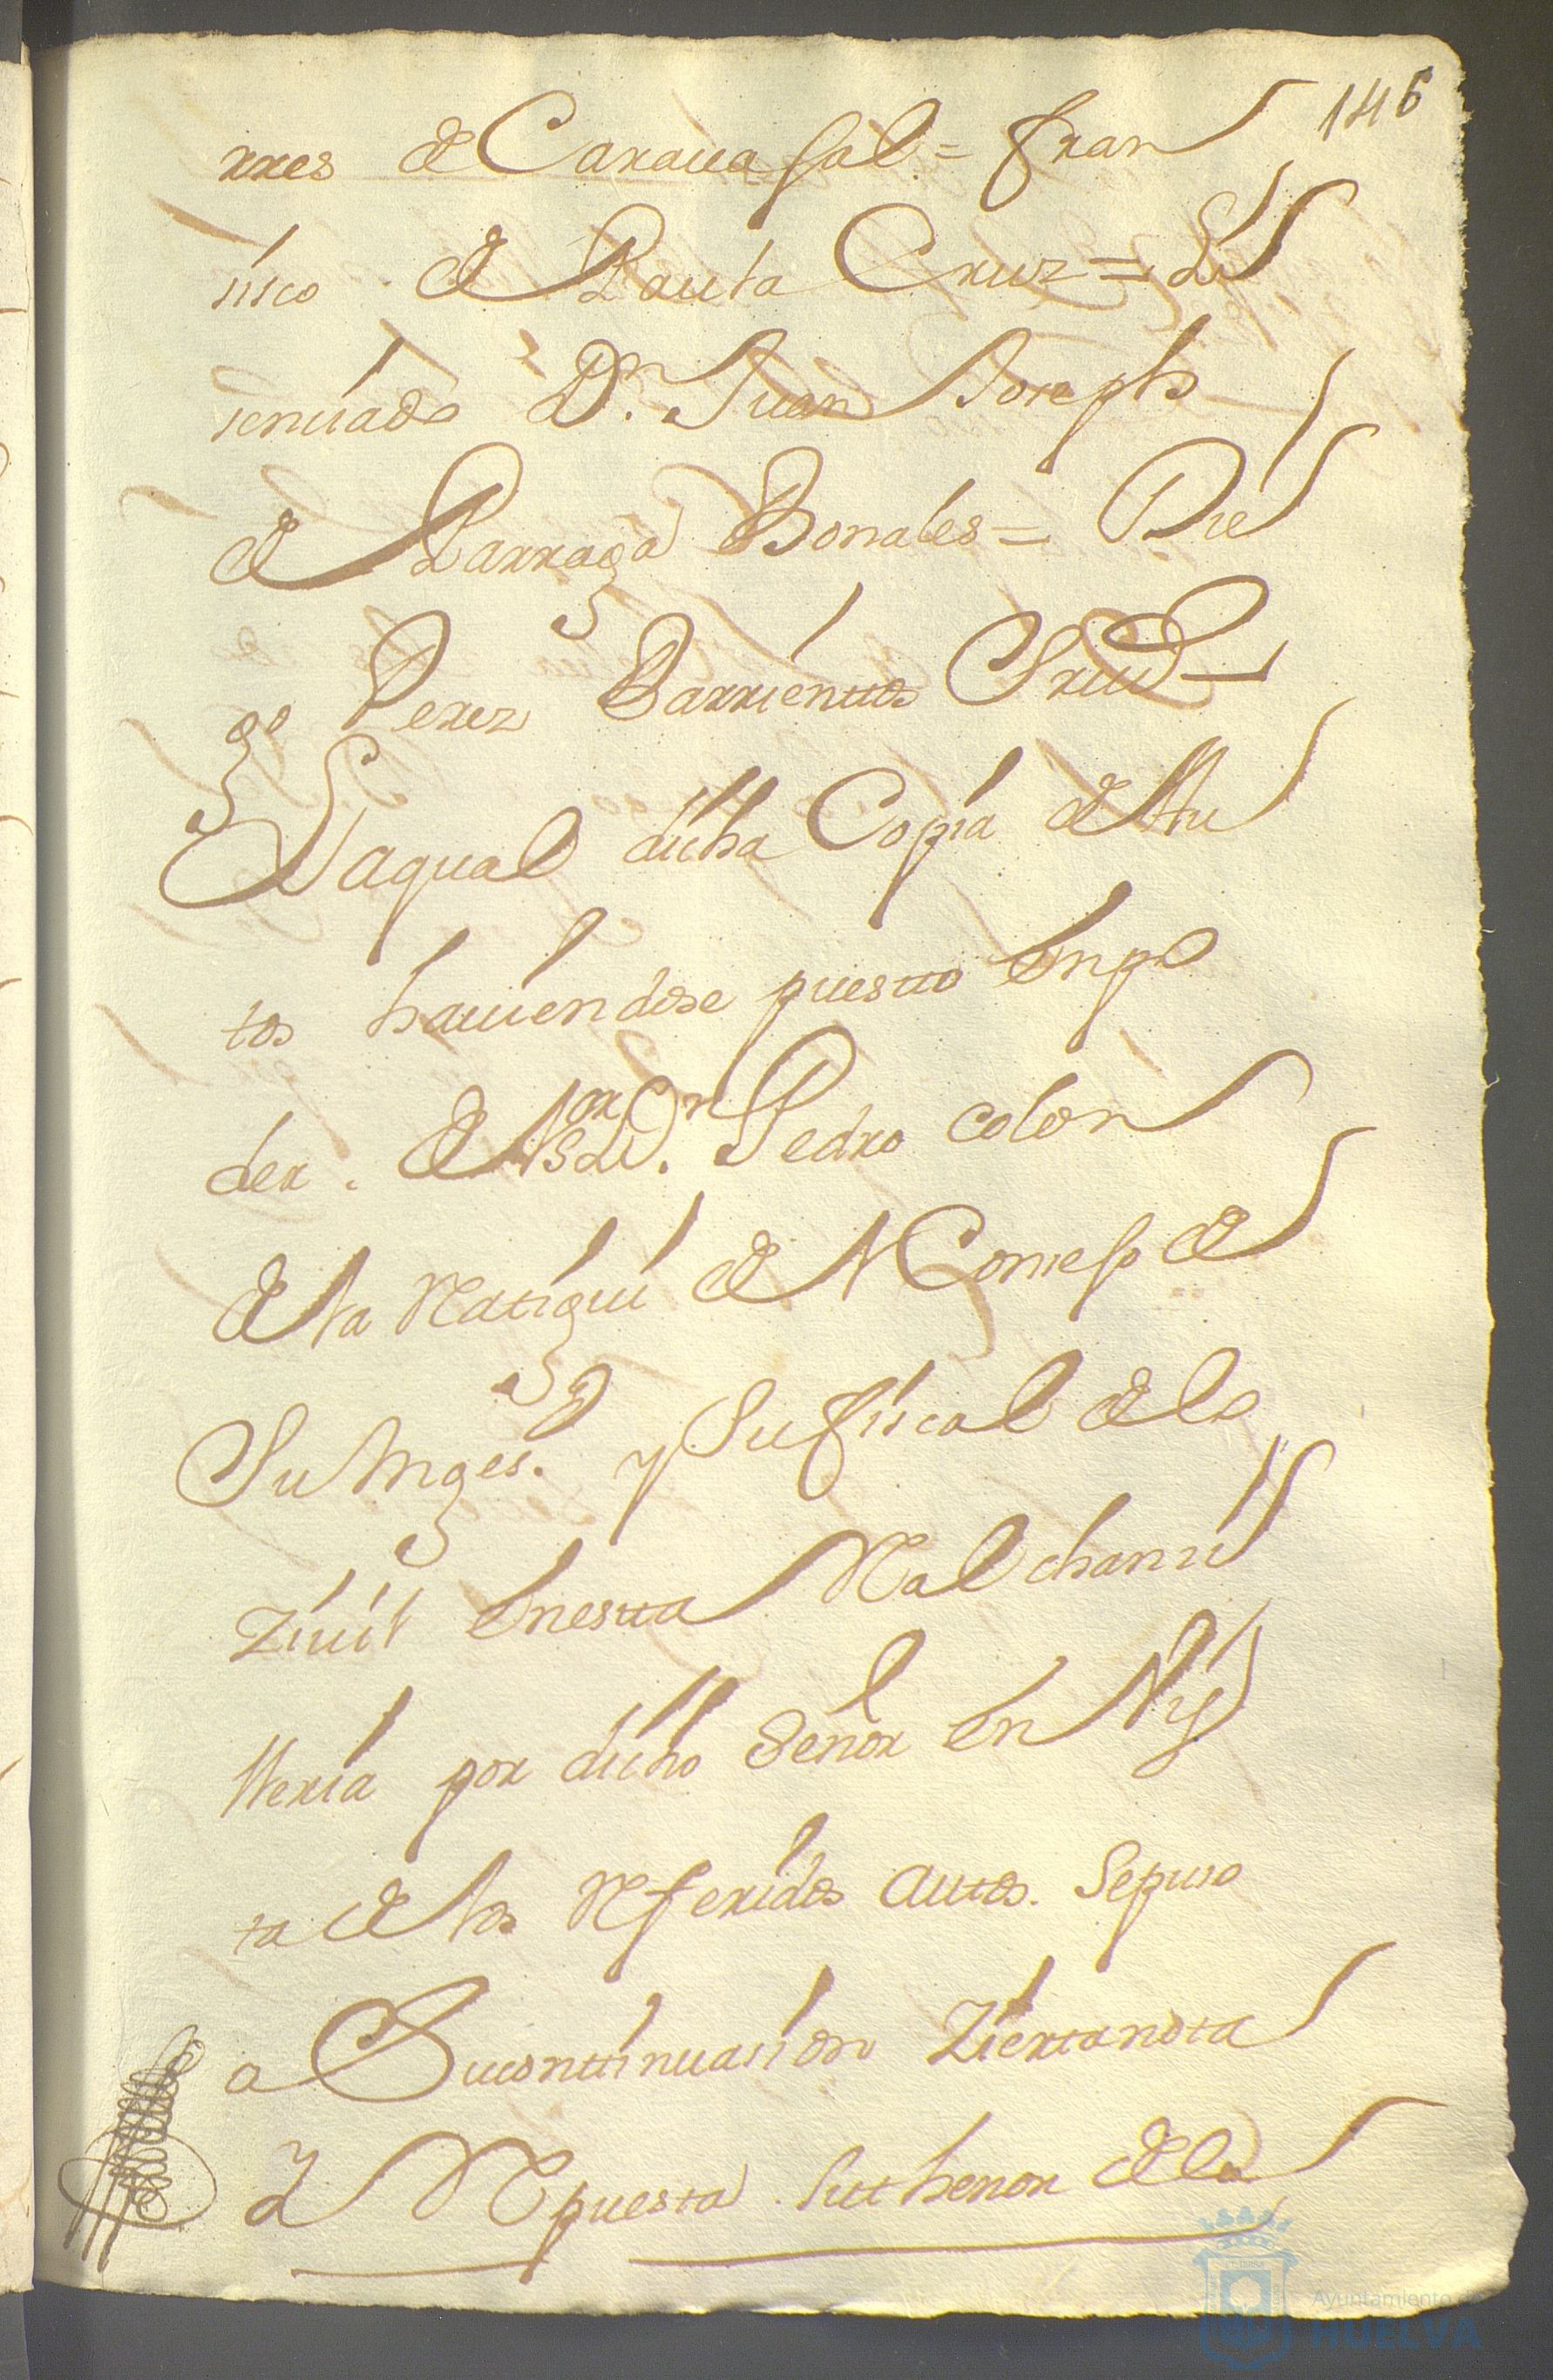 146
rres de Carauajal = fran
sisco de Pauta Cruz = Li
senciado Dn. Juan Joseph
de Parraga Bonales = Die
go Perez Barrientos
Laqual dicha Copia de Au
tos hauiendose puesto en po
der. del Sor. Dn. Pedro colon
de la Rategui del Consejo de
Su Mages.d y Su fiscal de lo
Ziuil en esta Rl. chanzi
lleria por dicho Señor en Vis
ta de los Referidos autos. Sepuso
a Sucontinuasion Ziertanota
Y Rpuesta Su thenor dela
Ayuntamiento de
HUELVA